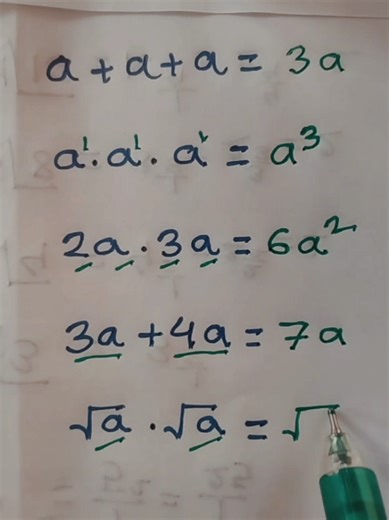 a + a + a = 3a
a¹ · a¹ · a¹ = a³
2a · 3a = 6a²
3a + 4a = 7a
√a · √a = √